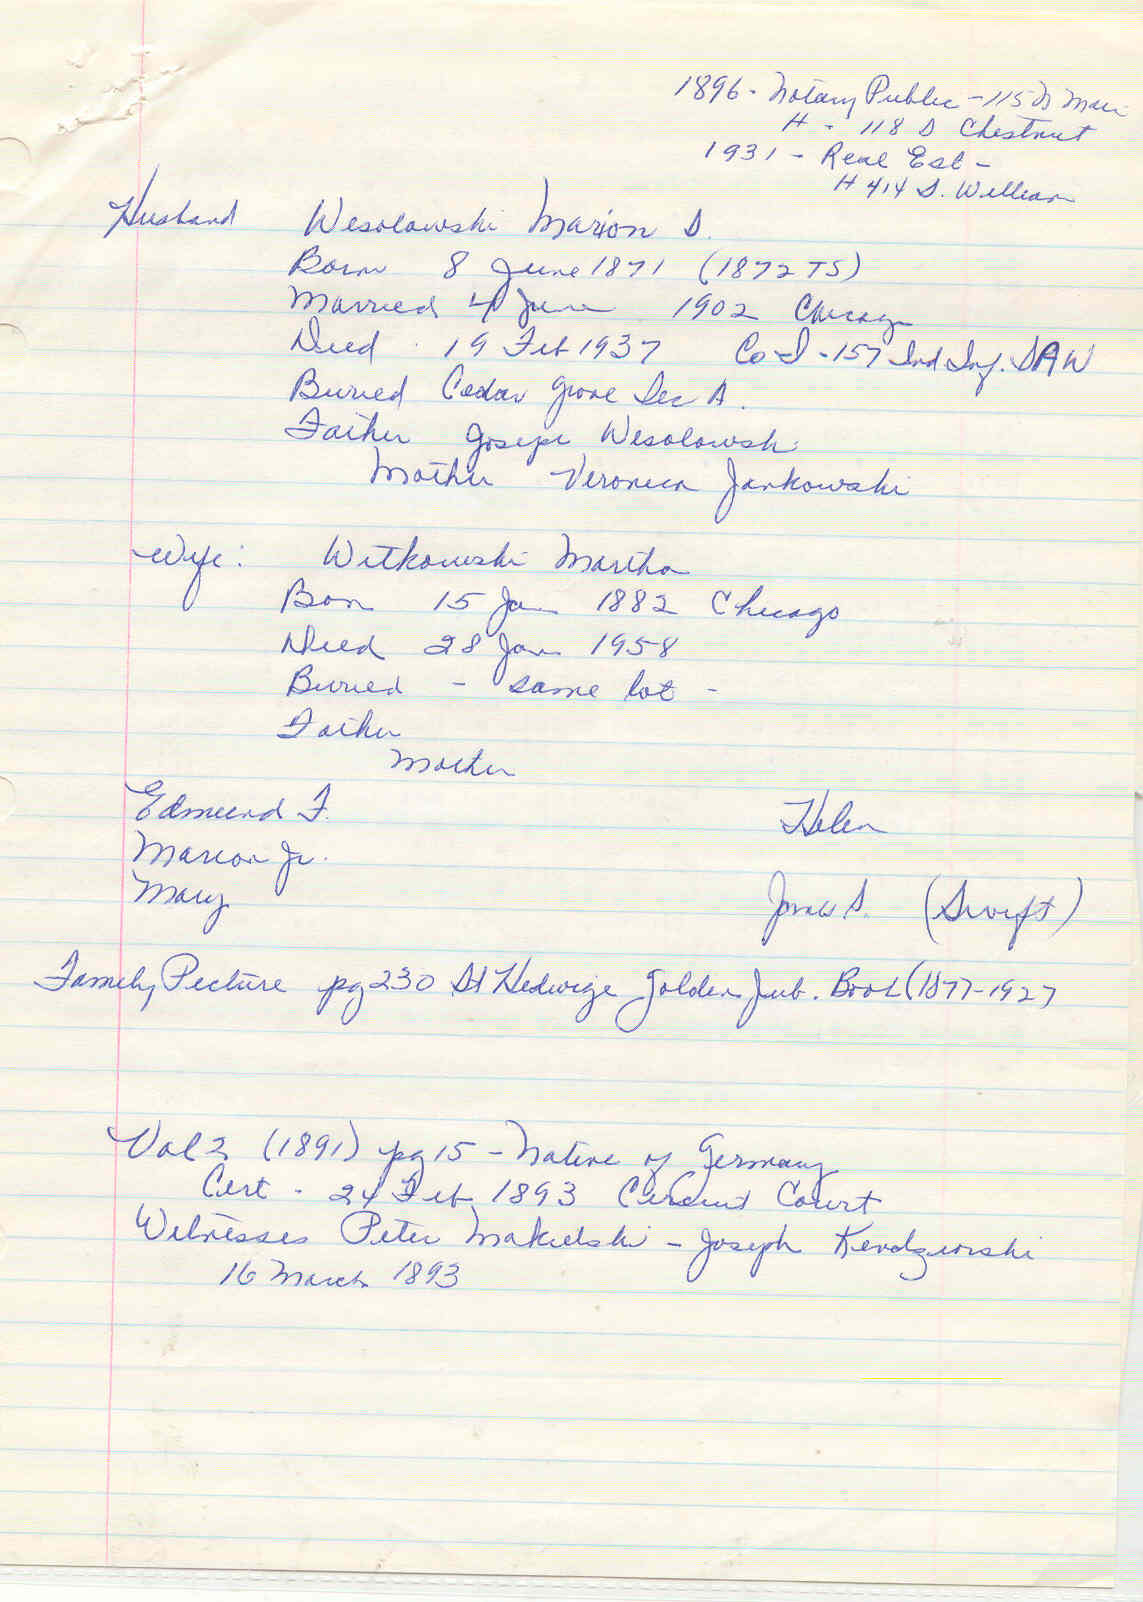 1896 - Notary Public - 115 N Main
H - 118 S Chestnut
1931 - Real Est -
H 414 S. William
Husband Wesolowski Marion S.
Born 8 June 1871 (1872 TS)
Married 4 June 1902 Chicago
Died 19 Feb 1937 Co I - 157 Ind Inf. SAW
Buried Cedar Grove Sec A.
Father Joseph Wesolowski
Mother Veronica Jankowski
Wife: Witkowski Martha
Born 15 Jan 1882 Chicago
Died 28 Jan 1958
Buried - same lot -
Father
Mother
Edmund F. Helen
Marion Jr.
Mary S. (Swift)
Family Picture pg 230 St Hedwige Golden Jub. Book (1877-1927
Vol 2 (1891) pg 15 - Native of Germany
Cert - 24 Feb 1893 Circuit Court
Witnesses Peter Makielski - Joseph Kendziorski
16 March 1893